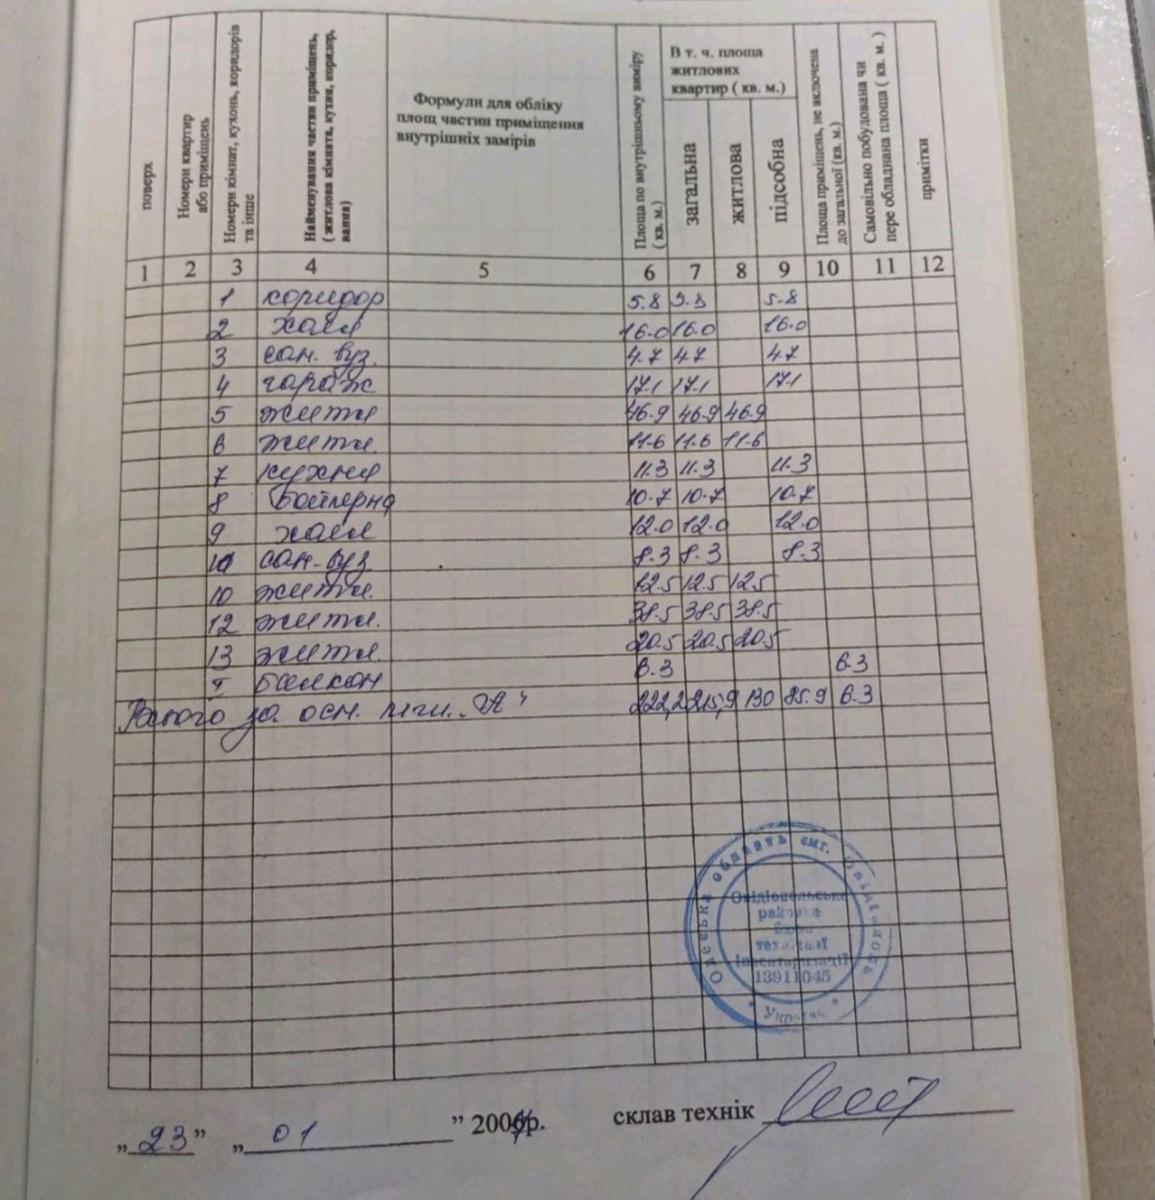 поверх
Номери квартир або приміщень
Номери кімнат, кухонь, коридорів та інше
Найменування частин приміщень, ( житлова кімната, кухня, коридор, вання)
Формули для обліку
площ частин приміщення
внутрішніх замірів
Площа по внутрішньому виміру ( кв. м.)
В т. ч. площа
житлових
квартир ( кв. м.)
загальна
житлова
підсобна
Площа приміщень, не включена до загальної (кв. м.)
Самовільно побудована чи пере обладнана площа ( кв. м. )
примітки
1 2 3 4 5 6 7 8 9 10 11 12
1 коридор 5.8 5.8 5.8
2 холл 16.0 16.0 16.0
3 сан. вуз. 4.7 4.7 4.7
4 гараж 17.1 17.1 17.1
5 житл 46.9 46.9 46.9
6 житл. 11.6 11.6 11.6
7 кухня 11.3 11.3 11.3
8 бойлерна 10.7 10.7 10.7
9 холл 12.0 12.0 12.0
10 сан-вуз 8.3 8.3 8.3
10 житл. 12.5 12.5 12.5
12 житл. 38.5 38.5 38.5
13 житл. 20.5 20.5 20.5
I балкон 6.3 6.3
Всього за осн. літ. „А" 222,2 215,9 130 85.9 6.3
Одеська область смт. Овідіополь
Овідіопольське
районне
бюро
технічної
інвентаризації
13911045
* Україна *
„23” „ 01 ” 200 р. склав технік